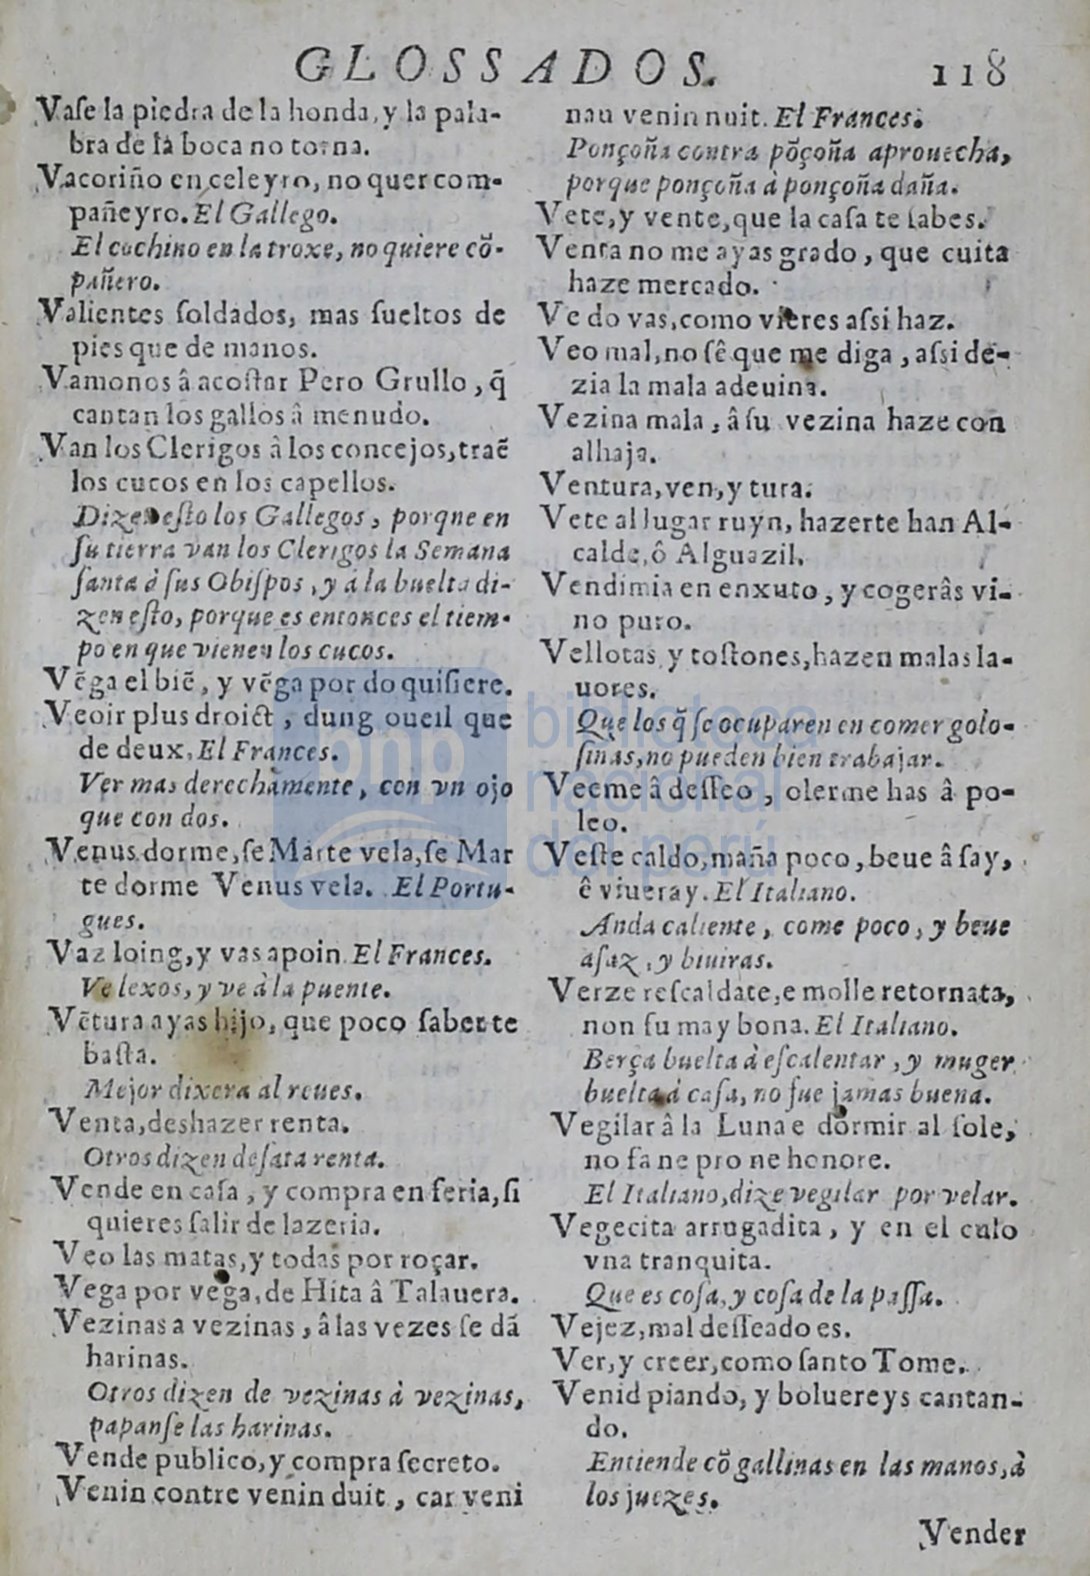 GLOSSADOS. 118
Vase la piedra de la honda, y la pala-
bra de la boca no torna.
Vacoriño en celeyro, no quer com-
pañeyro. El Gallego.
El cochino en la troxe, no quiere cõ-
pañero.
Valientes soldados, mas sueltos de
pies que de manos.
Vamonos â acostar Pero Grullo, q̃
cantan los gallos â menudo.
Van los Clerigos â los concejos, traẽ
los cucos en los capellos.
Dizen esto los Gallegos, porque en
su tierra van los Clerigos la Semana
santa à sus Obispos, y a la buelta di-
zen esto, porque es entonces el tiem-
po en que vienen los cucos.
Vẽga el biẽ, y vẽga por do quisiere.
Veoir plus droict, dung oueil que
de deux. El Frances.
Ver mas derechamente, con vn ojo
que con dos.
Venus dorme, se Marte vela, se Mar
te dorme Venus vela. El Portu-
gues.
Vaz loing, y vas apoin. El Frances.
Ve lexos, y ve à la puente.
Vẽtura ayas hijo, que poco saber te
basta.
Mejor dixera al reues.
Venta, deshazer renta.
Otros dizen desata renta.
Vende en casa, y compra en feria, si
quieres salir de lazeria.
Veo las matas, y todas por roçar.
Vega por vega, de Hita â Talauera.
Vezinas a vezinas, â las vezes se dã
harinas.
Otros dizen de vezinas à vezinas,
papanse las harinas.
Vende publico, y compra secreto.
Venin contre venin duit, car veni
nau venin nuit. El Frances.
Ponçoña contra põçoña aprouecha,
porque ponçoña à ponçoña daña.
Vete, y vente, que la casa te sabes.
Venta no me ayas grado, que cuita
haze mercado.
Ve do vas, como vieres assi haz.
Veo mal, no sê que me diga, assi de-
zia la mala adeuina.
Vezina mala, â su vezina haze con
alhaja.
Ventura, ven, y tura.
Vete al lugar ruyn, hazerte han Al-
calde, ô Alguazil.
Vendimia en enxuto, y cogerâs vi-
no puro.
Vellotas y tostones, hazen malas la-
uores.
Que los q̃ se ocuparen en comer golo-
sinas, no pueden bien trabajar.
Veeme â desseo, olerme has â po-
leo.
Veste caldo, maña poco, beue â say,
ê viueray. El Italiano.
Anda caliente, come poco, y beue
asaz, y biuiras.
Verze rescaldate, e molle retornata,
non su may bona. El Italiano.
Berça buelta à escalentar, y muger
buelta à casa, no fue jamas buena.
Vegilar â la Luna e dormir al sole,
no fa ne pro ne honore.
El Italiano, dize vegilar por velar.
Vegecita arrugadita, y en el culo
vna tranquita.
Que es cosa, y cosa de la passa.
Vejez, mal desseado es.
Ver, y creer, como santo Tome.
Venid piando, y boluereys cantan-
do.
Entiende cõ gallinas en las manos, à
los juezes.
Vender
bnp
biblioteca
nacional
del perú